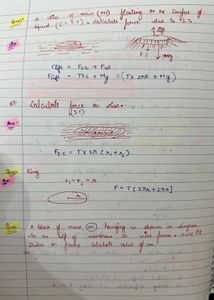 Ques: A disc of mass (m) floating on the surface of
liquid (S.T = T) calculate force due to S.T.
Ans
F.S.T Mg
= FS.T + Fwt
= T x 2πR + Mg = (T x 2πR + Mg)
calculate force on disc.
(S.T)
Ans
FS.T = T x 2π (r₁ + r₂)
Ques: Ring
r₁ = r₂ = r
Ans
F = T [2πr + 2πr]
Ques: A block of mass (m) hanging as shown in diagram
the help of membrane in wire frame
slides on frame calculate value of m.